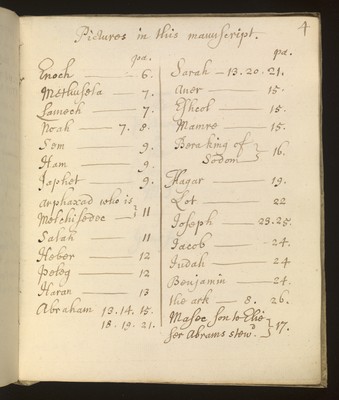 4
Pictures in this manuscript.
pa.
Enoch — 6.
Methusela — 7.
Lamech — 7.
Noah — 7. 8.
Sem — 9.
Ham — 9.
Japhet — 9.
Arphaxad who is
Melchisedec — 11
Salah — 11
Heber — 12
Peleg — 12
Haran — 13
Abraham 13. 14. 15.
18. 19. 21.
pa.
Sarah — 13. 20. 21.
Aner — 15.
Eshcol — 15.
Mamre — 15.
Bera king of
Sodom 16.
Hagar — 19.
Lot — 22
Joseph — 23. 25.
Jacob — 24.
Judah — 24
Benjamin — 24.
the ark — 8. 26.
Masec son to Elie
ser Abrams stewd. 17.